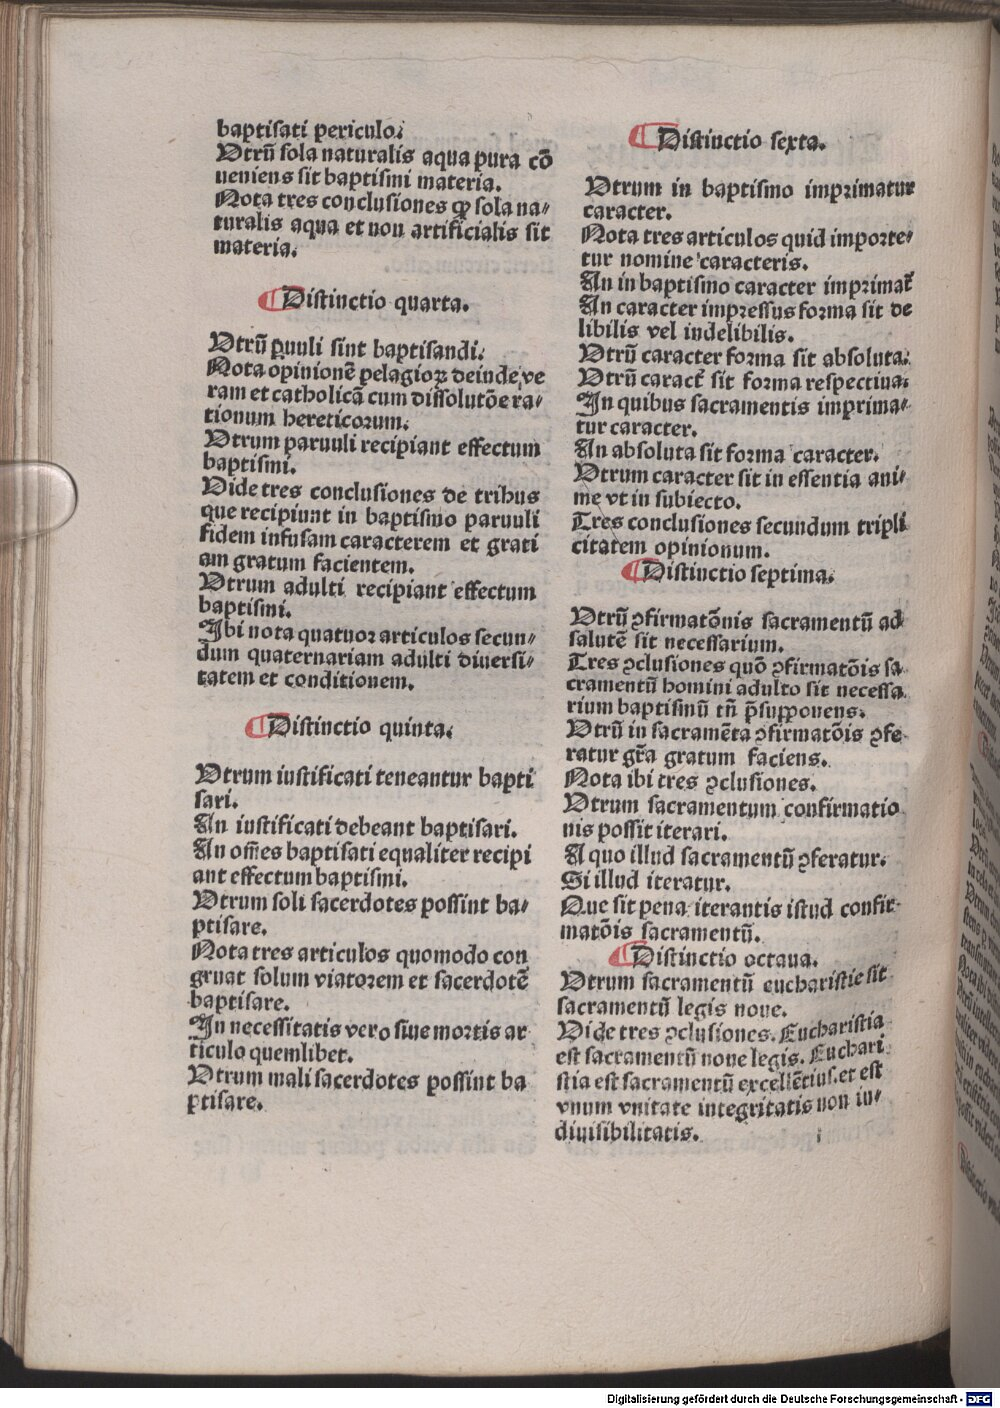 baptisati periculo.
Vtrū sola naturalis aqua pura cō
ueniens sit baptismi materia.
Nota tres conclusiones ꝙ sola na⸗
turalis aqua et non artificialis sit
materia.
¶ Distinctio quarta.
Vtrū ꝑuuli sint baptisandi.
Nota opinionē pelagioꝝ deinde ve
ram et catholicā cum dissolutōe ra⸗
tionum hereticorum.
Vtrum paruuli recipiant effectum
baptismi.
Vide tres conclusiones de tribus
que recipiunt in baptismo paruuli
fidem infusam caracterem et grati
am gratum facientem.
Vtrum adulti recipiant effectum
baptismi.
Ibi nota quatuor articulos secun⸗
dum quaternariam adulti diuersi⸗
tatem et conditionem.
¶ Distinctio quinta.
Vtrum iustificati teneantur bapti
sari.
An iustificati debeant baptisari.
An om̄es baptisati equaliter recipi
ant effectum baptismi.
Vtrum soli sacerdotes possint ba⸗
ptisare.
Nota tres articulos quomodo con
gruat solum viatorem et sacerdotē
baptisare.
In necessitatis vero siue mortis ar
ticulo quemlibet.
Vtrum mali sacerdotes possint ba
ptisare.
¶ Distinctio sexta.
Vtrum in baptismo imprimatur
caracter.
Nota tres articulos quid importe⸗
tur nomine caracteris.
An in baptismo caracter imprimat᷑
An caracter impressus forma sit de
libilis vel indelibilis.
Vtrū caracter forma sit absoluta.
Vtrū caract᷑ sit forma respectiua.
In quibus sacramentis imprima⸗
tur caracter.
An absoluta sit forma caracter.
Vtrum caracter sit in essentia ani⸗
me vt in subiecto.
Tres conclusiones secundum tripli
citatem opinionum.
¶ Distinctio septima.
Vtrū ꝯfirmatōnis sacramentū ad
salutē sit necessarium.
Tres ꝯclusiones quō ꝯfirmatōis sa
cramentū homini adulto sit necessa
rium baptismū tn̄ p̄supponens.
Vtrū in sacramēta ꝯfirmatōis ꝯfe
ratur gr̄a gratum faciens.
Nota ibi tres ꝯclusiones.
Vtrum sacramentum confirmatio
nis possit iterari.
A quo illud sacramentū ꝯferatur.
Si illud iteratur.
Que sit pena iterantis istud confir⸗
matōis sacramentū.
¶ Distinctio octaua.
Vtrum sacramentū eucharistie sit
sacramentū legis noue.
Vide tres ꝯclusiones. Eucharistia
est sacramentū noue legis. Euchari
stia est sacramentū excellētius. et est
vnum vnitate integritatis non in⸗
diuisibilitatis.
Digitalisierung gefördert durch die Deutsche Forschungsgemeinschaft - DFG